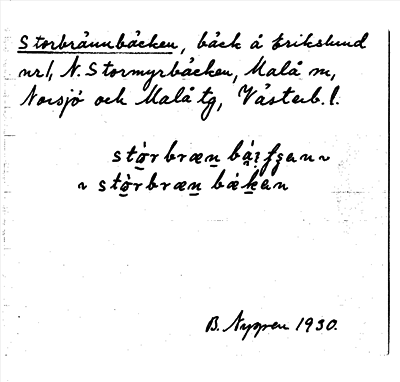 Storbrännbäcken, bäck å Erikslund
nr1, N. Stormyrbäcken, Malå sn,
Norsjö och Malå tg, Västerb. l.
stòrbræn
~ stòrbræn bækan
B. Nyppen 1930.